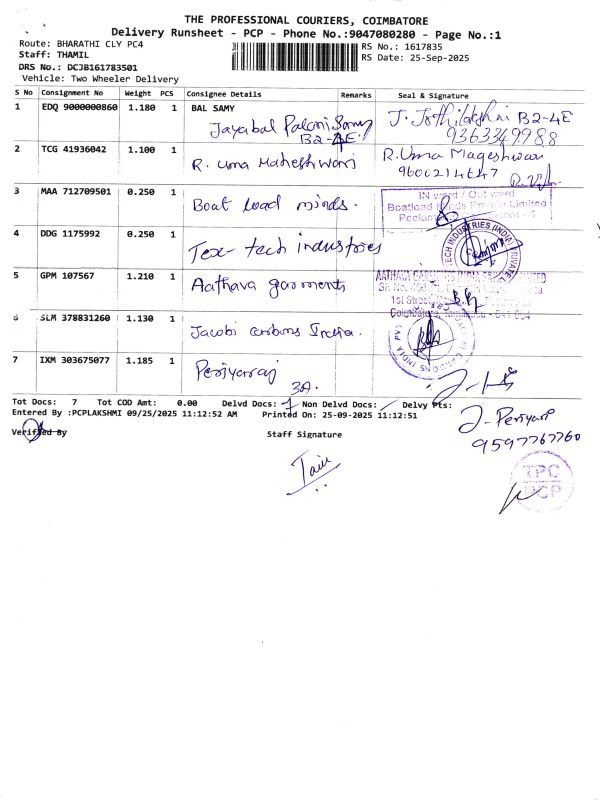 THE PROFESSIONAL COURIERS, COIMBATORE
Delivery Runsheet - PCP - Phone No.:9047080280 - Page No.:1
Route: BHARATHI CLY PC4
Staff: THAMIL
DRS No.: DCJB161783501
Vehicle: Two Wheeler Delivery
RS No.: 1617835
RS Date: 25-Sep-2025
S No Consignment No Weight PCS Consignee Details Remarks Seal & Signature
1 EDQ 9000000860 1.180 1 BAL SAMY
Jayabal Palani Samy
B2-4E.
J. Jothilakshmi B2-4E
9363349988
2 TCG 41936042 1.100 1 R. Uma Maheshwari
R. Uma Mageshwari
9600214647
3 MAA 712709501 0.250 1 Boat load minds.
IN ward / Out ward
Boatload Minds Private Limited
4 DDG 1175992 0.250 1 Tex-tech industries
TECH INDUSTRIES (INDIA) PRIVATE
5 GPM 107567 1.210 1 Aathava garments
1st Street
Coimbatore, Tamilnadu
6 SLM 378831260 1.130 1 Jacobi carbons India.
CARBONS INDIA PVT
7 IXM 303675077 1.185 1 Periyaraj
3A.
Tot Docs: 7 Tot COD Amt: 0.00 Delvd Docs: 7 Non Delvd Docs: Delvy Pts:
Entered By :PCPLAKSHMI 09/25/2025 11:12:52 AM Printed On: 25-09-2025 11:12:51
J. Periyar
9597767760
Verified By Staff Signature
TPC
PCP